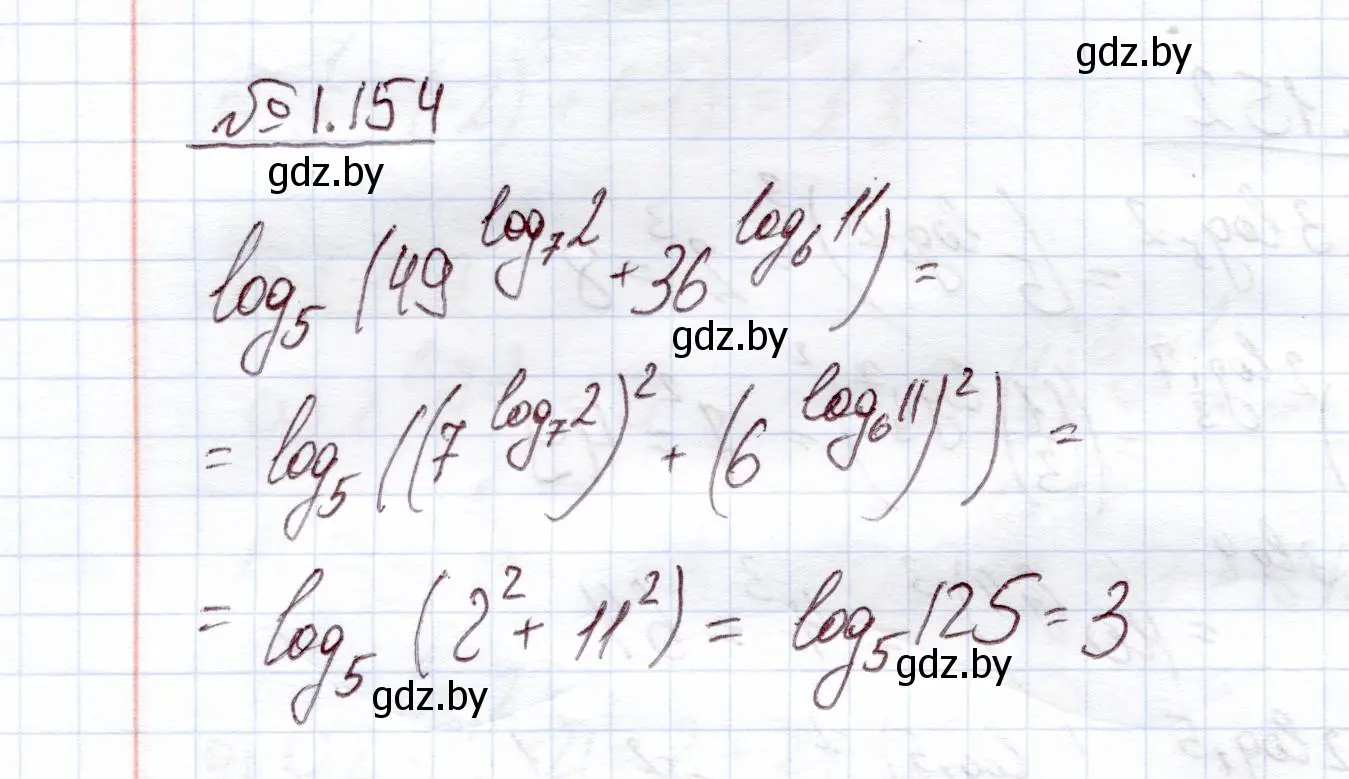 gdz.by
№ 1.154
gdz.by
log₅ (49^(log₇2) + 36^(log₆11)) =
gdz.by
= log₅ ((7^(log₇2))² + (6^(log₆11))²) =
= log₅ (2² + 11²) = log₅ 125 = 3
gdz.by gdz.by